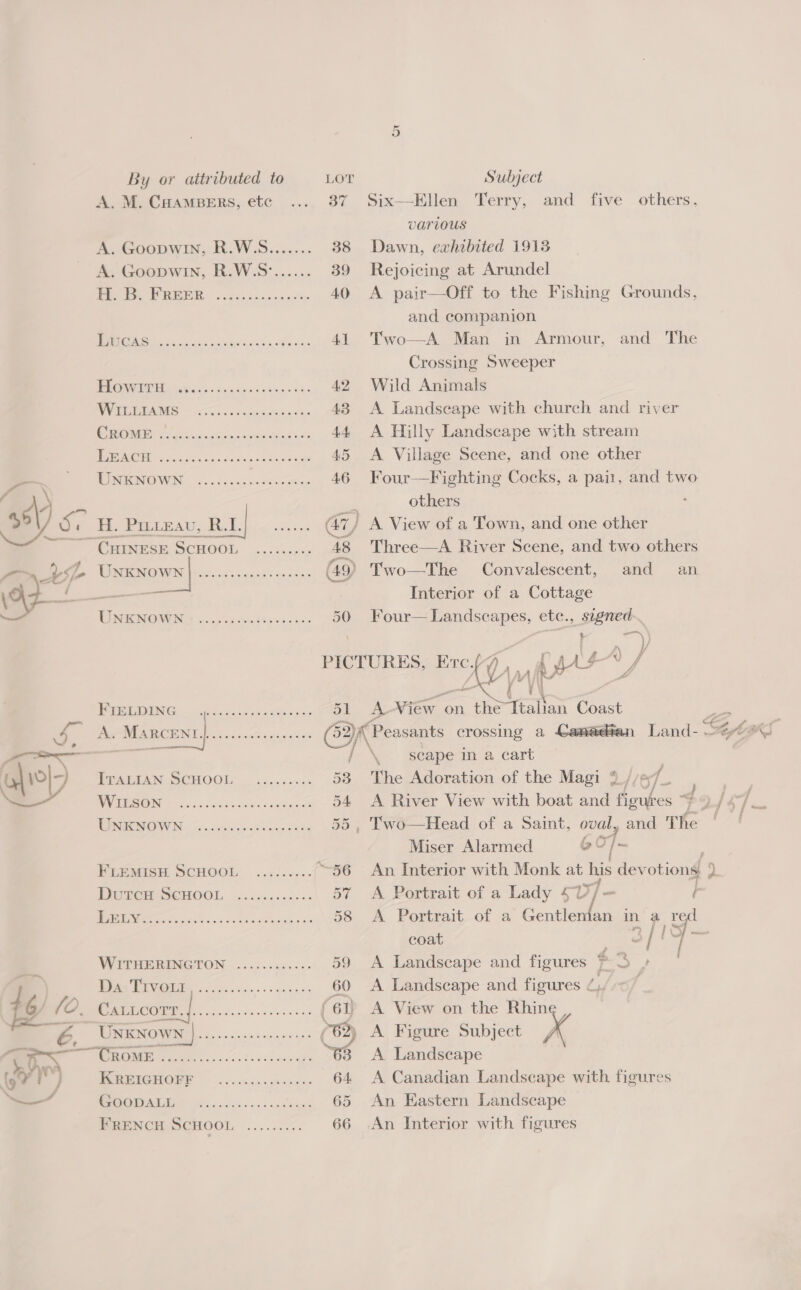 5
By or attributed to LOT Subject
A. M. CHAMBERS, etc ... 37 Six—Ellen Terry, and five others, various
A. GOODWIN, R.W.S....... 38 Dawn, exhibited 1913
A. GOODWIN, R.W.S....... 39 Rejoicing at Arundel
H. B. FREER ............... 40 A pair—Off to the Fishing Grounds, and companion
LUCAS ..................... 41 Two—A Man in Armour, and The Crossing Sweeper
HOWITH ..................... 42 Wild Animals
WILLIAMS .................. 43 A Landscape with church and river
CROME ..................... 44 A Hilly Landscape with stream
LEACH ..................... 45 A Village Scene, and one other
UNKNOWN .................. 46 Four—Fighting Cocks, a pair, and two others
H. PILLEAU, R.I. ...... 47 A View of a Town, and one other
CHINESE SCHOOL ......... 48 Three—A River Scene, and two others
UNKNOWN .................. 49 Two—The Convalescent, and an Interior of a Cottage
UNKNOWN .................. 50 Four—Landscapes, etc., signed
PICTURES, ETC.
FIELDING .................. 51 A View on the Italian Coast
A. MARCENT ............... 52 Peasants crossing a Canadian Landscape in a cart
ITALIAN SCHOOL ......... 53 The Adoration of the Magi
WILSON ..................... 54 A River View with boat and figures
UNKNOWN .................. 55 Two—Head of a Saint, oval, and The Miser Alarmed 60/-
FLEMISH SCHOOL ......... 56 An Interior with Monk at his devotions
DUTCH SCHOOL ............ 57 A Portrait of a Lady
LELY ........................ 58 A Portrait of a Gentleman in a red coat
WITHERINGTON ............ 59 A Landscape and figures
DA TIVOLI .................. 60 A Landscape and figures
CALLCOTT .................. 61 A View on the Rhine
UNKNOWN .................. 62 A Figure Subject
CROME ..................... 63 A Landscape
KREIGHOFF ............... 64 A Canadian Landscape with figures
GOODALL .................. 65 An Eastern Landscape
FRENCH SCHOOL ......... 66 An Interior with figures